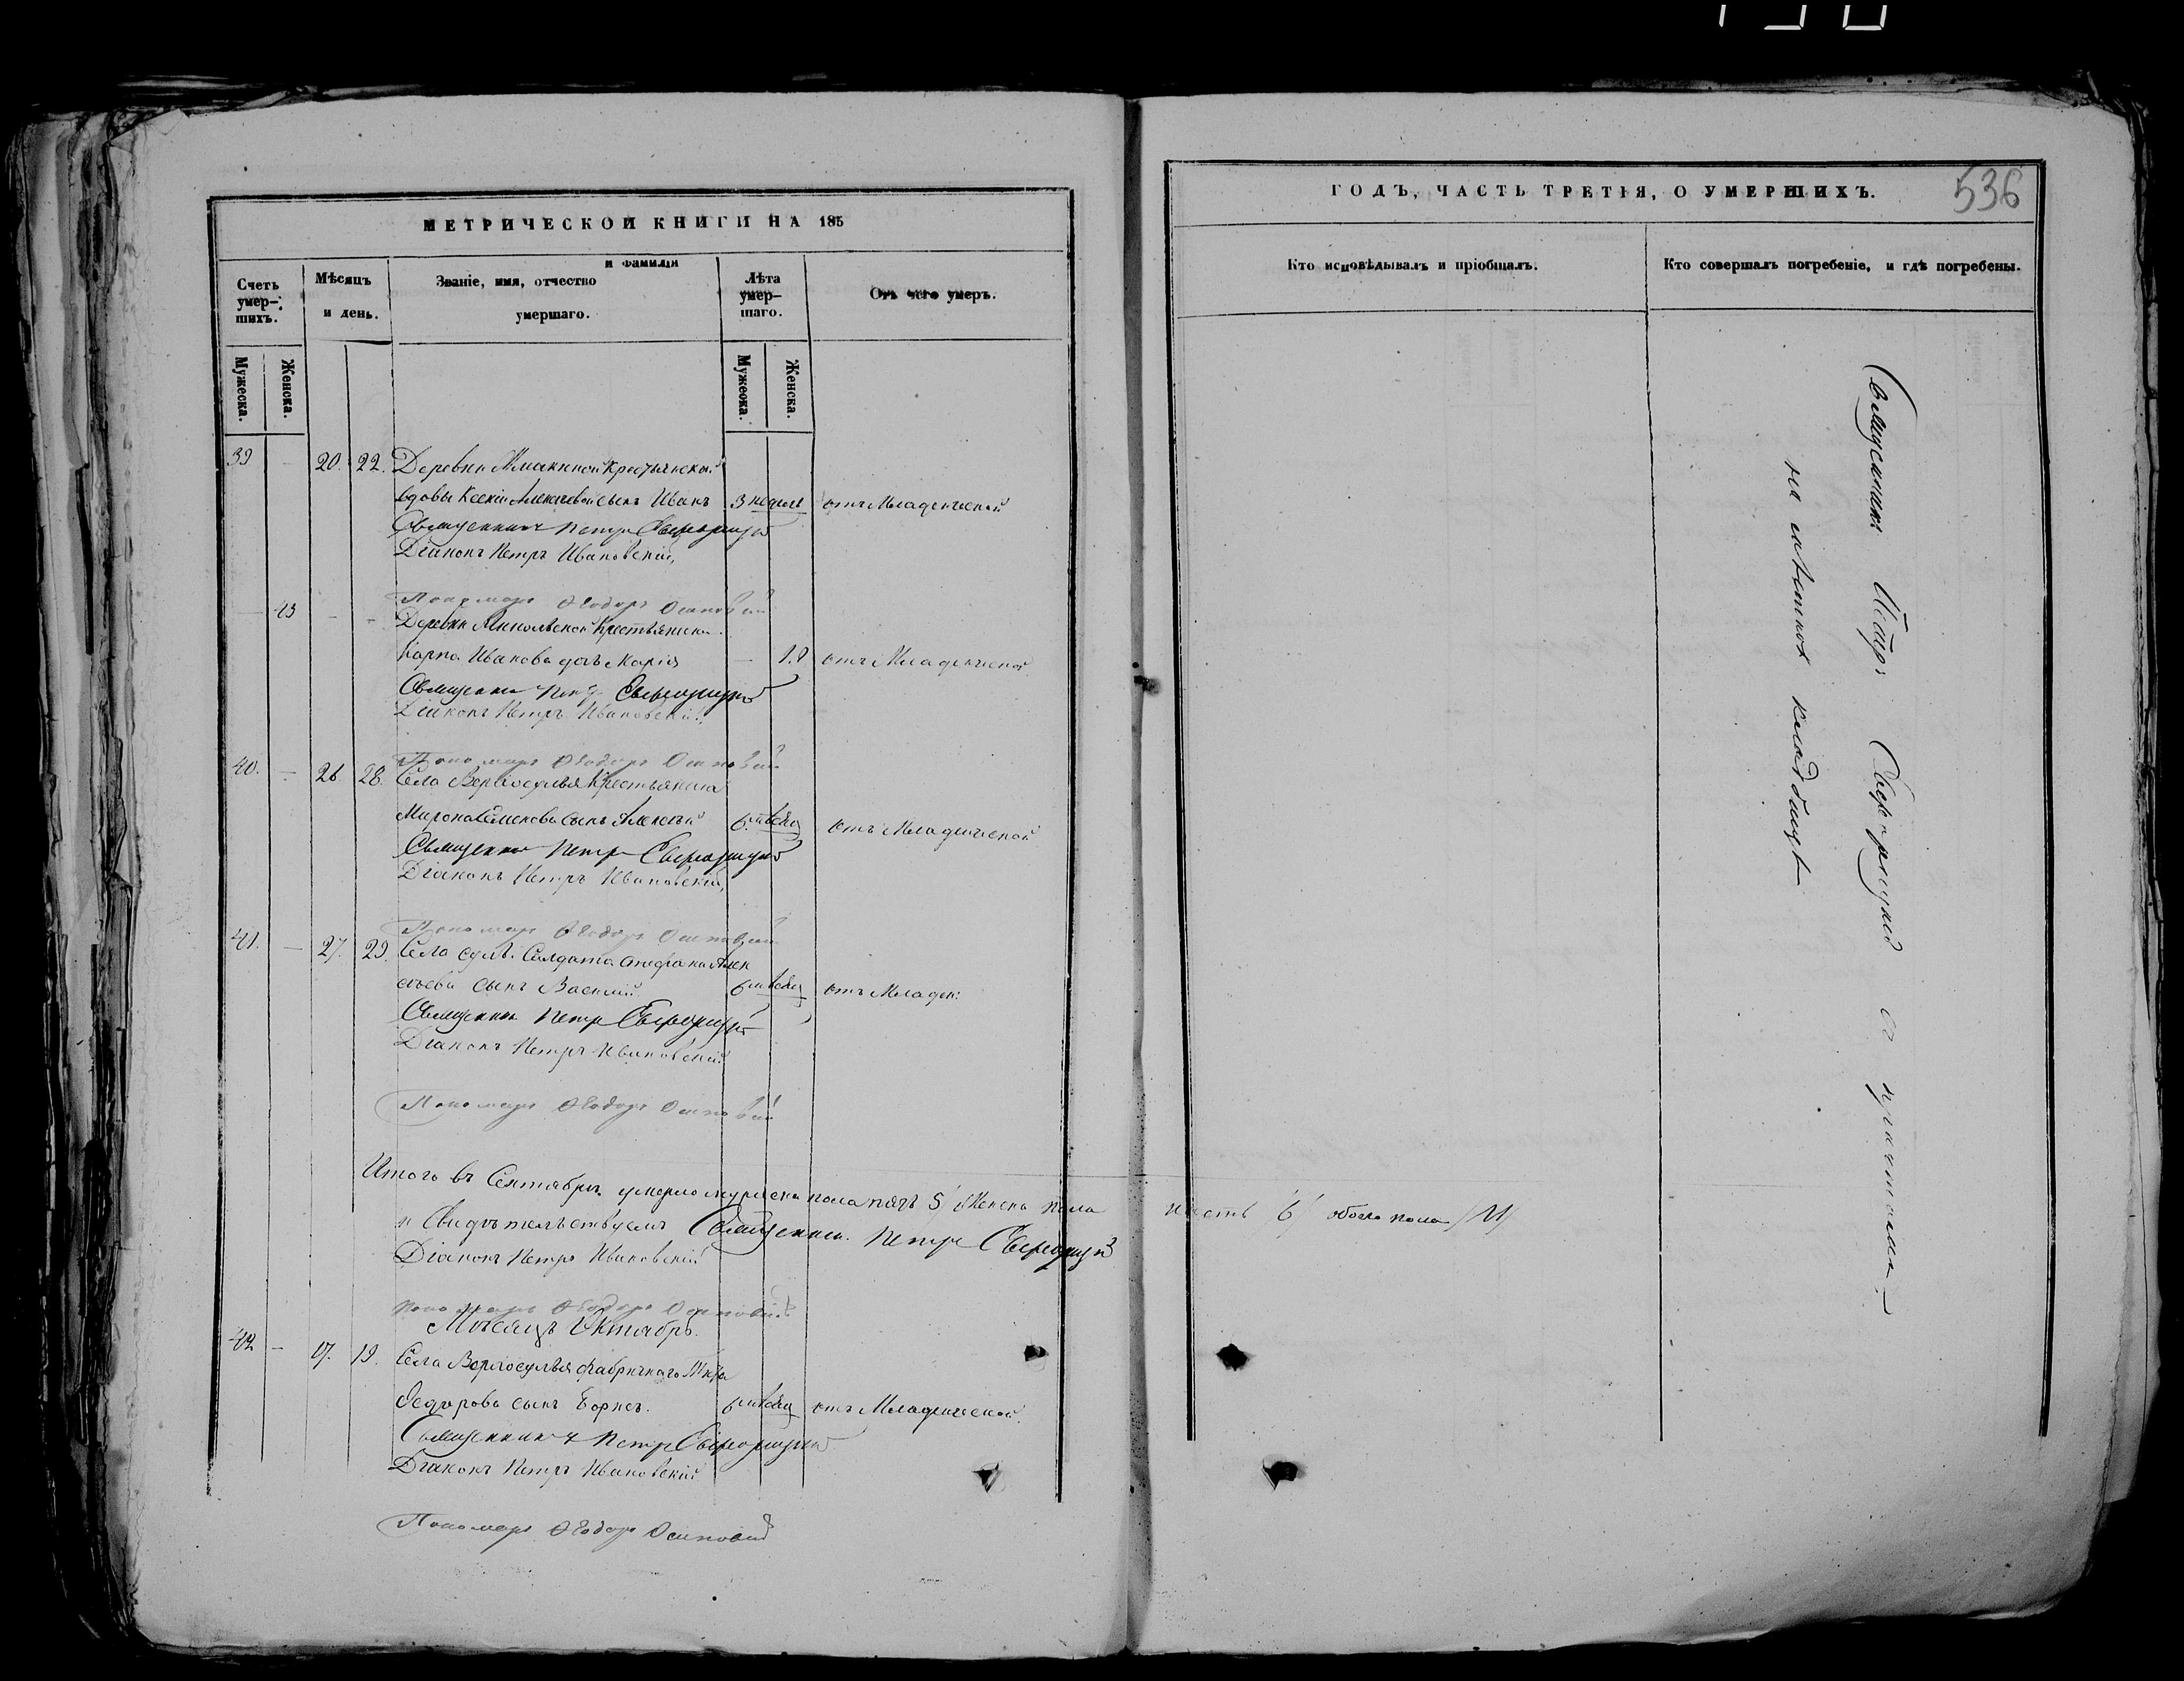 МЕТРИЧЕСКОЙ КНИГИ НА 185
Счетъ умер-шихъ.
Мѣсяцъ и день.
Званіе, имя, отчество и фамилія умершаго.
Лѣта умер-шаго.
Отъ чего умеръ.
Мужеска.
Женска.
Мужеска.
Женска.
39 - 20. 22. Деревни крестьянской
вдовы Ксеніи Алексѣевой сынъ Иванъ 3 недѣли отъ Младенческой
Священникъ Петръ
Діаконъ Петръ Ивановскій,
Пономарь Ѳеодоръ
43 - - Деревни крестьянина
Карпа Иванова дочь Марія - 1.8 отъ Младенческой
Священникъ Петръ
Діаконъ Петръ Ивановскій
Пономарь Ѳеодоръ
40. - 26 28. Села Верхосулья Крестьянина
Мирона Семенова сынъ Алексѣй 6 мѣсяц отъ Младенческой
Священникъ Петръ
Діаконъ Петръ Ивановскій,
Пономарь Ѳеодоръ
41. - 27. 29. Села сулъ. Солдата Стефана Алек
сѣева сынъ Василій 6 мѣсяц отъ Младен:
Священникъ Петръ
Діаконъ Петръ Ивановскій
Пономарь Ѳеодоръ
Итого въ Сентябрѣ умерло мужеска пола пять 5/ Женска пола шесть /6/ обоего пола /11/
Свидѣтельствуемъ Священникъ Петръ
Діаконъ Петръ Ивановскій
Пономарь Ѳеодоръ
Мѣсяцъ Октябрь.
42 - 17. 19. Села Верхосулья фабричнаго
Ѳедорова сынъ Борисъ. 6 мѣсяц отъ Младенческой.
Священникъ Петръ
Діаконъ Петръ Ивановскій
Пономарь Ѳеодоръ
ГОДЪ, ЧАСТЬ ТРЕТІЯ, О УМЕРШИХЪ.
536
Кто исповѣдывалъ и пріобщалъ.
Кто совершалъ погребеніе, и гдѣ погребены.
Священникъ Петръ съ причтомъ
на мѣстномъ кладбищѣ